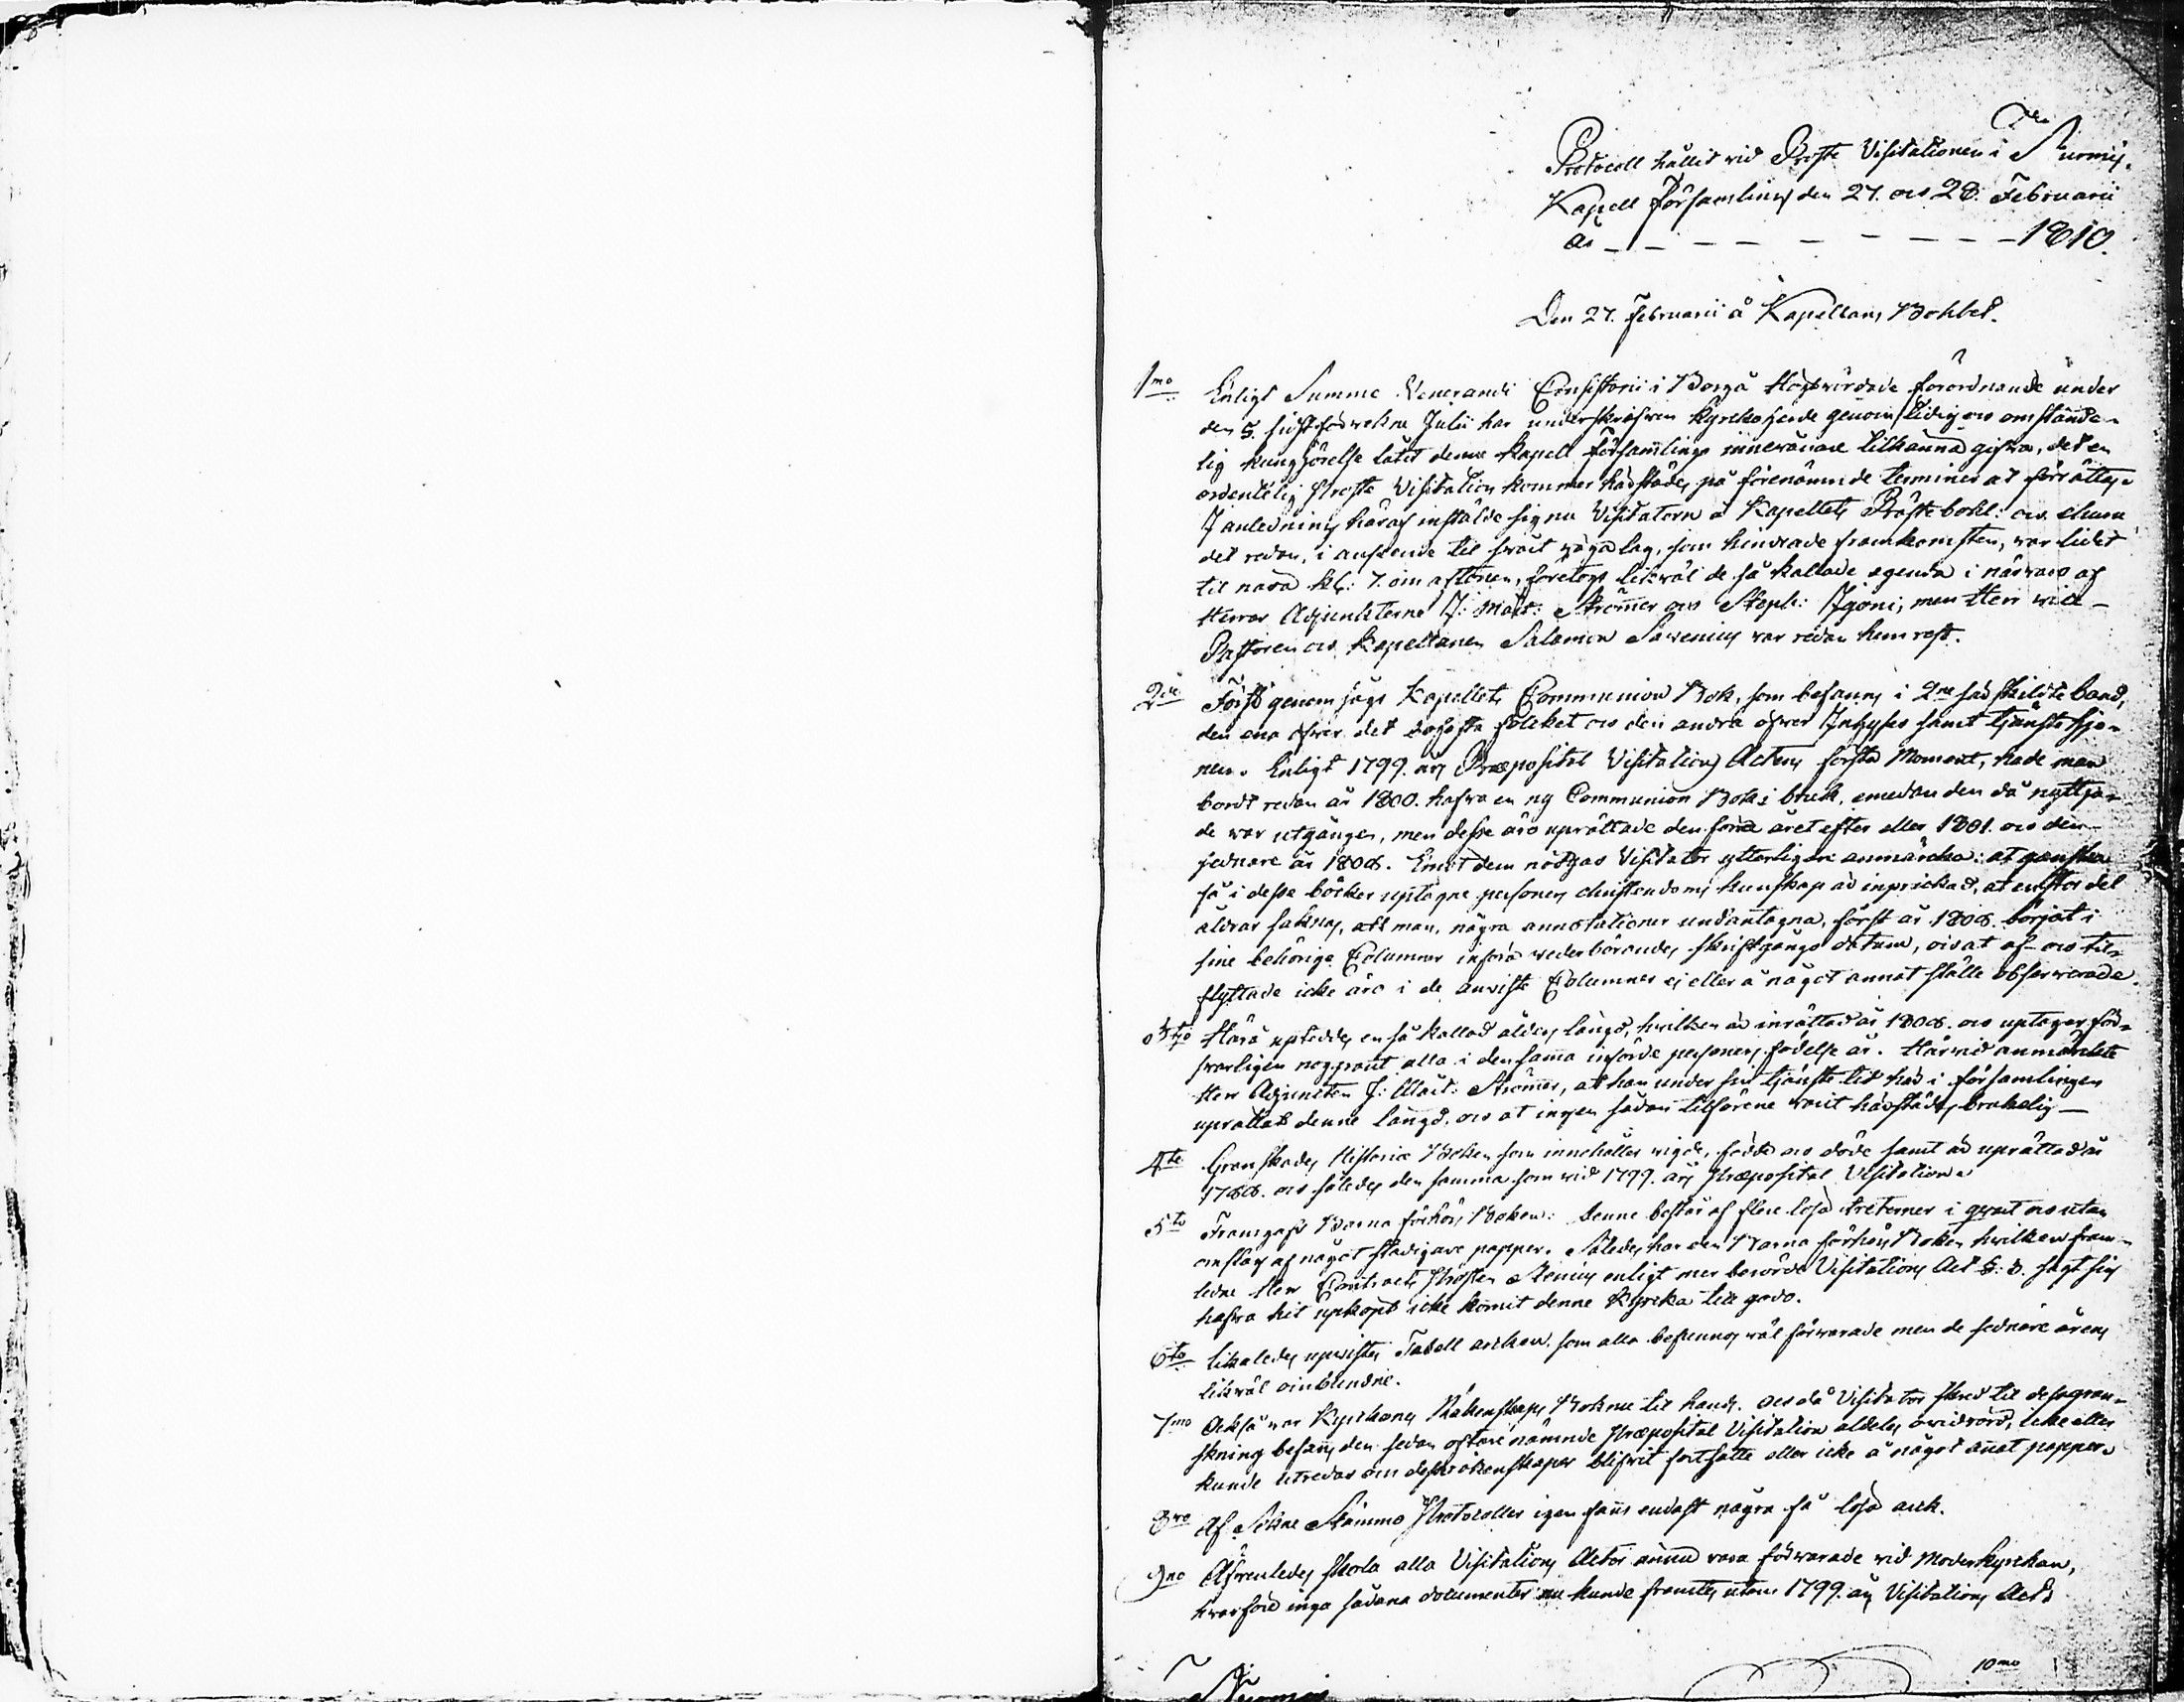 Protocoll hållit vid Prosté Visitationen i Nurmis
Kapell Församling den 27. och 28. Februarii
År - - - - - - - - - 1810.
Den 27. Februarii å Kapellans Bohlet.
1mo Enligt Summe Venerandi Consistorii i Borgå Högtvördade förordnande under
den 5. sidstförvekne Julii har underskrifven Kyrkoherde genom tidig och omstände-
lig kungjörelse låtit denne Kapell Församlings innevånare tilkänna gifva, det en
ordentelig Prosté Visitation kommer härstädes på förenämnde terminer at förrättas.
I anledning häraf instälde sig nu Visitatorn å Kapellets Prästebohl: och ehuru
det redan, i anseende til svårt vägalag, som hindrade framkomsten, var lidit
til nära kl: 7. om aftonen, företogs likväl de så kallade agenda i närvaro af
Herrar Adjunkterne J: Mårt: Strömmer och Steph: Igoni; men Herr vice
Pastoren och Kapellanen Salomon Savenius var redan hemrest.
2do Först genomsågs Kapellets Communion Bok, som befanns i 2ne särskildte band,
den ena öfver det bofasta folcket och den andra öfver Inhyses samt tjänstehjo-
nen. Enligt 1799. års Præposital Visitations Actens första Moment, hade man
bordt redan år 1800. hafva en ny Communion Bok i bruk, emedan den då nyttja-
de var utgången, men desse äro uprättade den förra året efter eller 1801. och den
sednare år 1808. Emot dem nödgas Visitator ytterligare anmärcka: at ganska
få i desse böcker uptagne personers christendoms kunskap är inprickad, at en stor del
åldrar saknas, at man, några annotationer undantagna, först år 1808. börjat i
sine behöriga Columner införa vederbörandes skriftgångs datum, och at af- och til-
flyttade icke äro i de anviste Columner ej eller å något annat ställe observerade.
3tio Härå uptedde, en så kallad ålders längd, hvilken är inrättad år 1808. och uptager för-
svarligen noggrant alla i den samma införde personers födelse år. Härvid anmärckte
Herr Adjuncten J: Mårt: Strömmer, at han under sin tjänste tid här i församlingen
uprättat denne längd, och at ingen sådan tilförene varit härstädes brukelig.
4to Granskades Historiæ Boken som innehåller vigde, födde och döde samt är uprättad år
1788. och således den samma som vid 1799. års Præposital Visitation.
5to Framgafs Barna förhörs Boken: Denne består af flere lösa treterner i qvart och utan
omslag af något stadigare papper. Således har den Barna förhörs Boken hvilken fram-
ledne Herr Contracts Prosten Stenius enligt mer berörde Visitations Act §: 3. sagt sig
hafva hit upköpt icke kommit denne Kyrka till godo.
6to likaledes upvistes Tabell arcken, som alla befunnos väl förvarade men de sednare årens
likväl oinbundne.
7mo Också var Kyrkans Räkenskaps Boken til hands. och då Visitator skred til dess gran-
skning befanns den sedan oftare nämnde Præposital Visitation aldeles ovidrörd, icke eller
kunde utredas om dess räkenskaper blifvit fortsatte eller icke å något annat papper.
8vo Af Sokne Stämmo Protocoller igen fanns endast några få lösa ark.
9no Äfvenledes skola alla Visitations Acter ännu vara förvarade vid Moderkyrkan,
hvarföre inga sådana documenter nu kunde framtes, utom 1799. års Visitations Act.
10mo
Nurmis